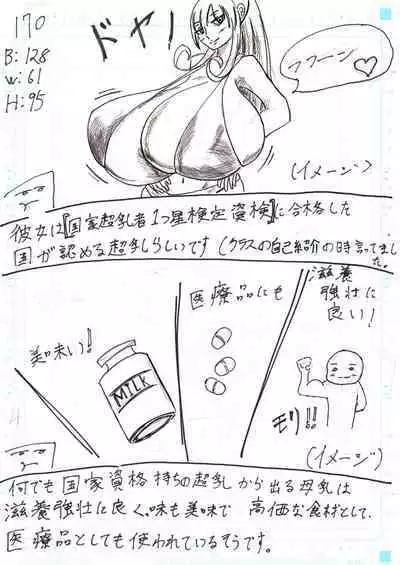 170
B: 128
W: 61
H: 95
ドヤッ
フフーン♡
(イメージ)
彼女は【国家超乳者1つ星検定資検】に合格した
国が認める超乳らしいです(クラスの自己紹介の時言ってました。
美味い!!
MILK
医療品にも
滋養
強壮に
良い!
モリ!!
(イメージ)
何でも国家資格持ちの超乳から出る母乳は
滋養強壮に良く、味も美味で 高価な食材として、
医療品としても使われているそうです。